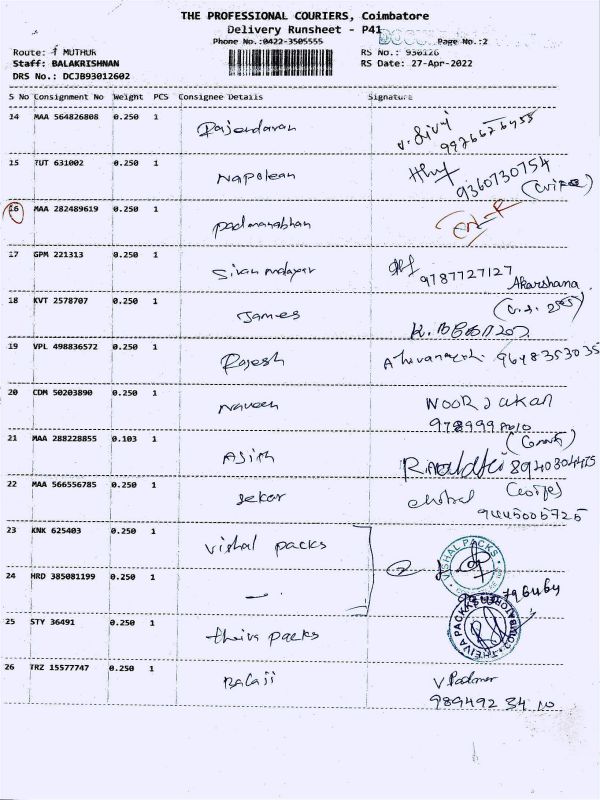 THE PROFESSIONAL COURIERS, Coimbatore
Delivery Runsheet - P41
Phone No.:0422-3505555 Page No.:2
Route: MUTHUR RS No.: 930126
Staff: BALAKRISHNAN RS Date: 27-Apr-2022
DRS No.: DCJB93012602
S No Consignment No Weight PCS Consignee Details Signature
14 MAA 564826808 0.250 1 Rajendaran
15 TUT 631002 0.250 1 Napolean
9360730754
16 MAA 282489619 0.250 1 Padmanabhan
17 GPM 221313 0.250 1
9787727127
Akarshana
18 KVT 2578707 0.250 1 James
19 VPL 498836572 0.250 1 Rajesh 9648353035
20 CDM 50203890 0.250 1 Naveen
21 MAA 288228855 0.103 1
22 MAA 566556785 0.250 1 Sekar
9445005725
23 KNK 625403 0.250 1 Vishal packs
VISHAL PACKS
24 HRD 385081199 0.250 1
25 STY 36491 0.250 1 theiva packs
THEIVA PACKS
26 TRZ 15577747 0.250 1 Balaji